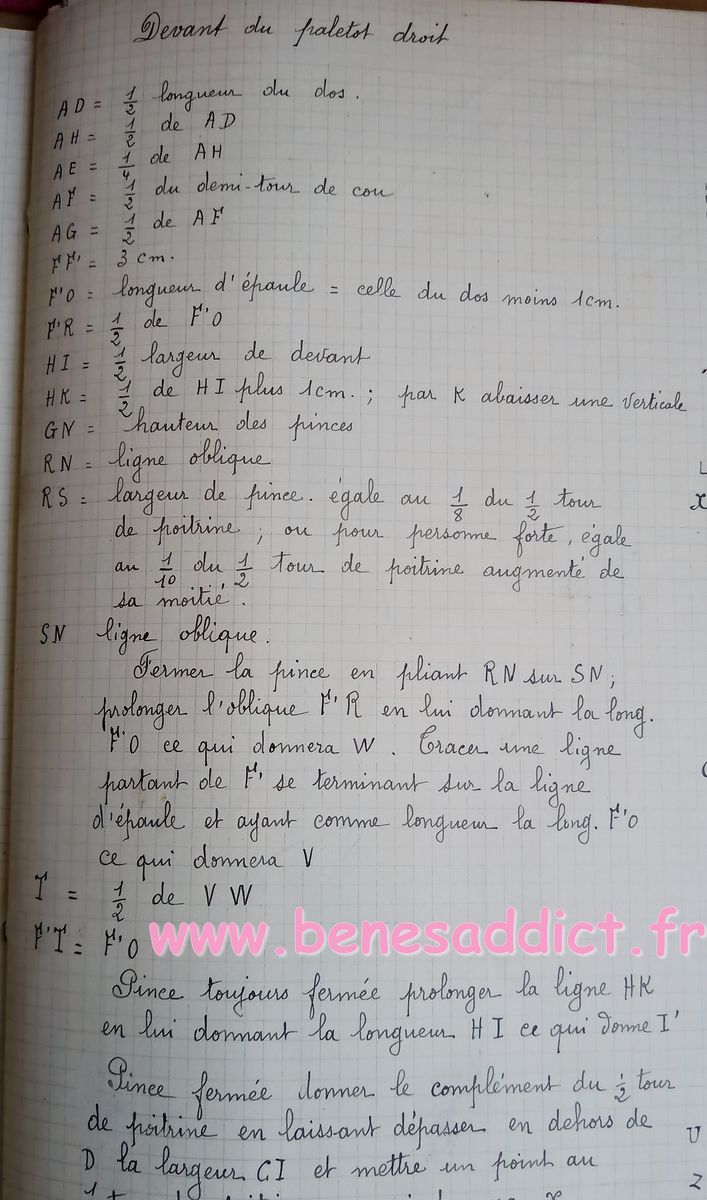 Devant du paletot droit
AD = 1/2 longueur du dos.
AH = 1/2 de AD
AE = 1/4 de AH
AF = 1/2 du demi-tour de cou
AG = 1/2 de AF
FF' = 3 cm.
F'O = longueur d'épaule = celle du dos moins 1cm.
F'R = 1/2 de F'O
HI = 1/2 largeur de devant
HK = 1/2 de HI plus 1cm. ; par K abaisser une verticale
GN = hauteur des pinces
RN = ligne oblique
RS = largeur de pince. égale au 1/8 du 1/2 tour
de poitrine ; ou pour personne forte, égale
au 1/10 du 1/2 tour de poitrine augmenté de
sa moitié.
SN ligne oblique.
Fermer la pince en pliant RN sur SN ;
prolonger l'oblique F'R en lui donnant la long.
F'O ce qui donnera W. Tracer une ligne
partant de F' se terminant sur la ligne
d'épaule et ayant comme longueur la long. F'O
ce qui donnera V
T = 1/2 de VW
F'T = F'O
www.benesaddict.fr
Pince toujours fermée prolonger la ligne HK
en lui donnant la longueur HI ce qui donne I'
Pince fermée donner le complément du 1/2 tour
de poitrine en laissant dépasser en dehors de
D la largeur CI et mettre un point au
U
Z